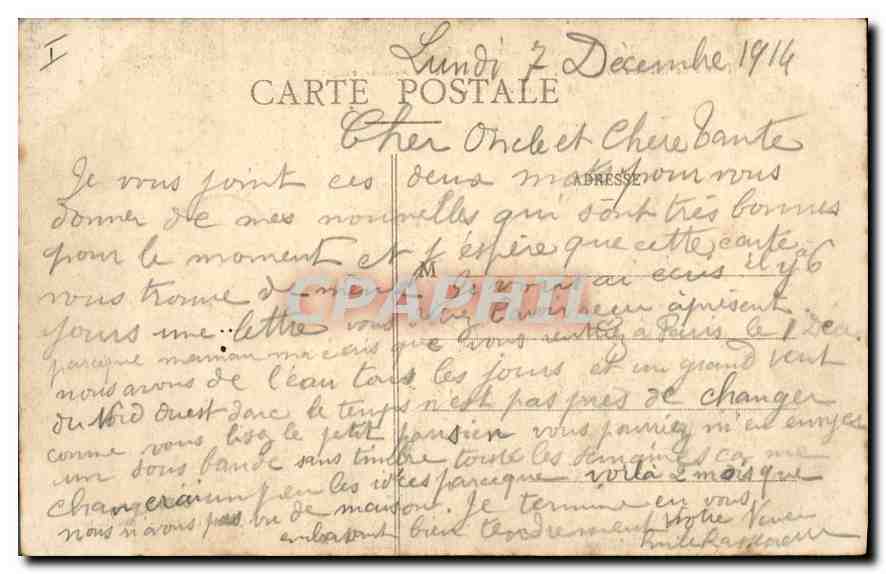 I
Lundi 7 Decembre 1914
CARTE POSTALE
Cher Oncle et Chère Tante
Je vous joint ces deux mots pour vous
ADRESSE
donner de mes nouvelles qui sont très bonnes
pour le moment et j'espère que cette carte
M
vous trouve de meme Je vous ai ecris il y a 6
CPAPHIL
jours une lettre vous apresent
parceque maman ma ecris que vous a Paris le 1 Dec.
nous avons de l'eau tous les jours et un grand vent
du Nord Ouest donc le temps n'est pas près de changer
comme vous lisez le petit parisien vous pourriez m'en envoyer
un sous bande sans timbre toute les semaines ca me
changerai un peu les idées parceque voilà 2 mois que
nous n'avons pas vu de maison. Je termine en vous
embrassant bien tendrement Votre Neveu